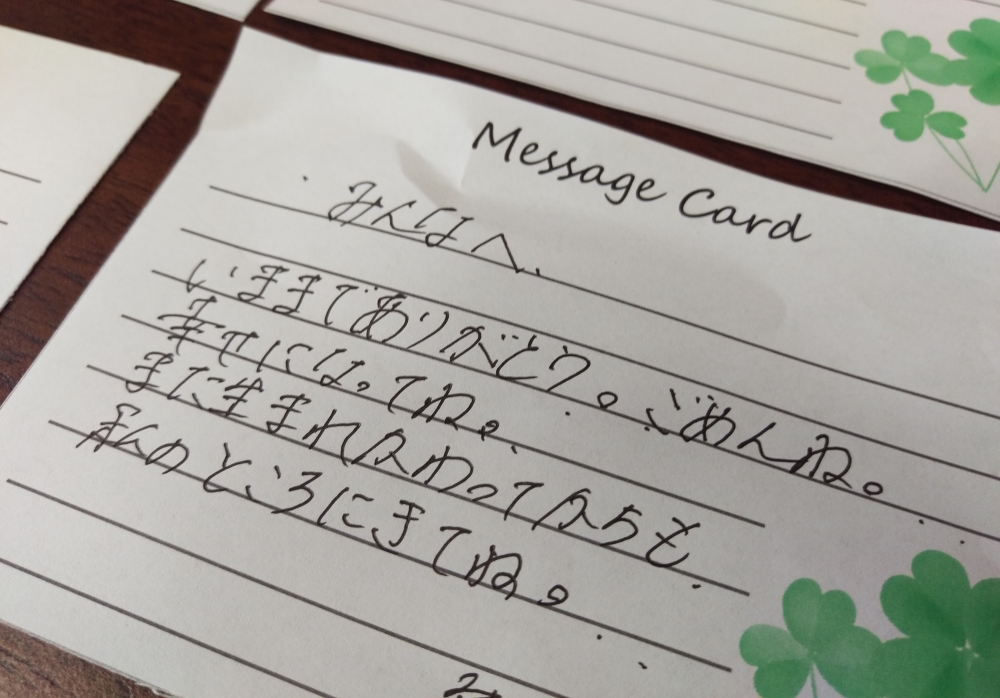 Message Card
みんなへ、
いままでありがとう。ごめんね。
幸せになってね。
また生まれかわってからも
私のところにきてね。